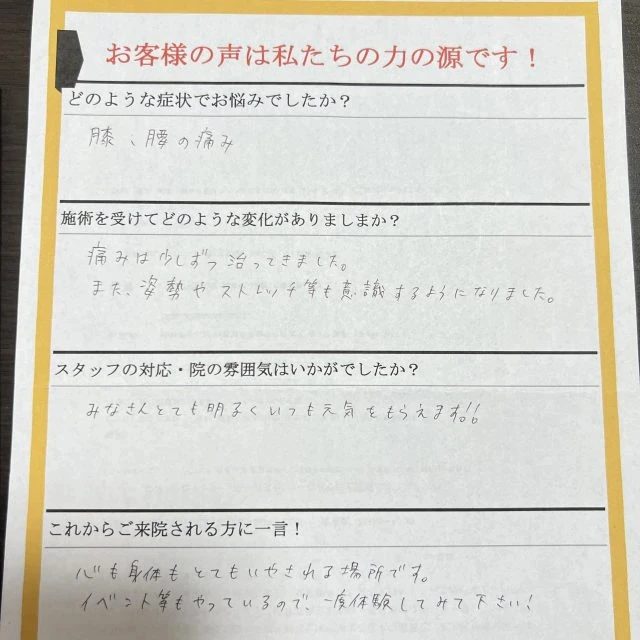 お客様の声は私たちの力の源です！
どのような症状でお悩みでしたか？
膝、腰の痛み
施術を受けてどのような変化がありましまか？
痛みは少しずつ治ってきました。
また、姿勢やストレッチ等も意識するようになりました。
スタッフの対応・院の雰囲気はいかがでしたか？
みなさんとても明るくいつも元気をもらえます!!
これからご来院される方に一言！
心も身体もとてもいやされる場所です。
イベント等もやっているので、一度体験してみて下さい!